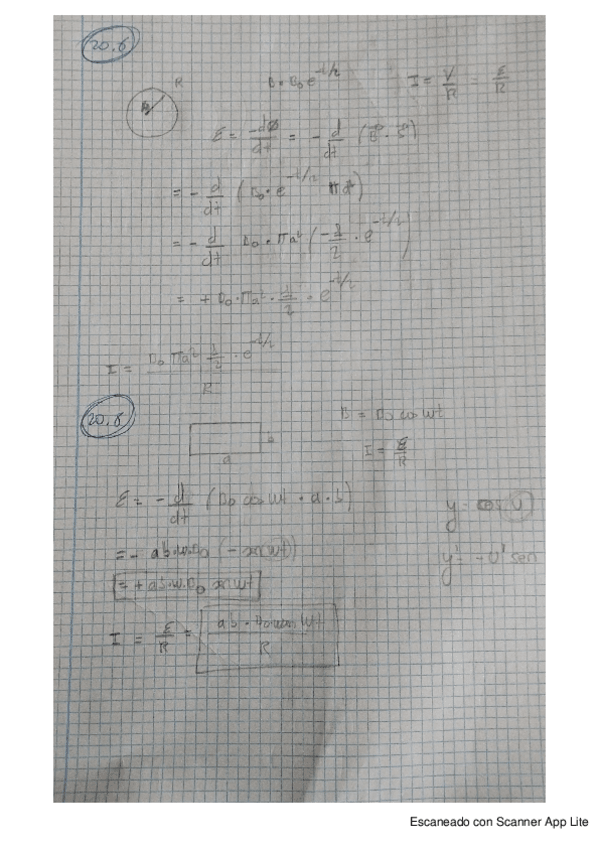 20.6
R B = B₀ e^{-t/2} I = V/R = ε/R
ε = -dΦ/dt = - d/dt (B⃗ · S⃗)
= - d/dt (B₀ · e^{-t/2} πa²)
= - d/dt B₀ · πa² (-1/2 · e^{-t/2})
= + B₀ · πa² · 1/2 · e^{-t/2}
I = B₀ πa² 1/2 · e^{-t/2} / R
20.6
B = B₀ cos wt
b
a
I = ε/R
ε = - d/dt (B₀ cos wt · a · b)
y = cos U
= - ab·w·B₀ (- sen wt)
y' = -U' sen
= + ab·w·B₀ sen wt
I = ε/R =
R
Escaneado con Scanner App Lite